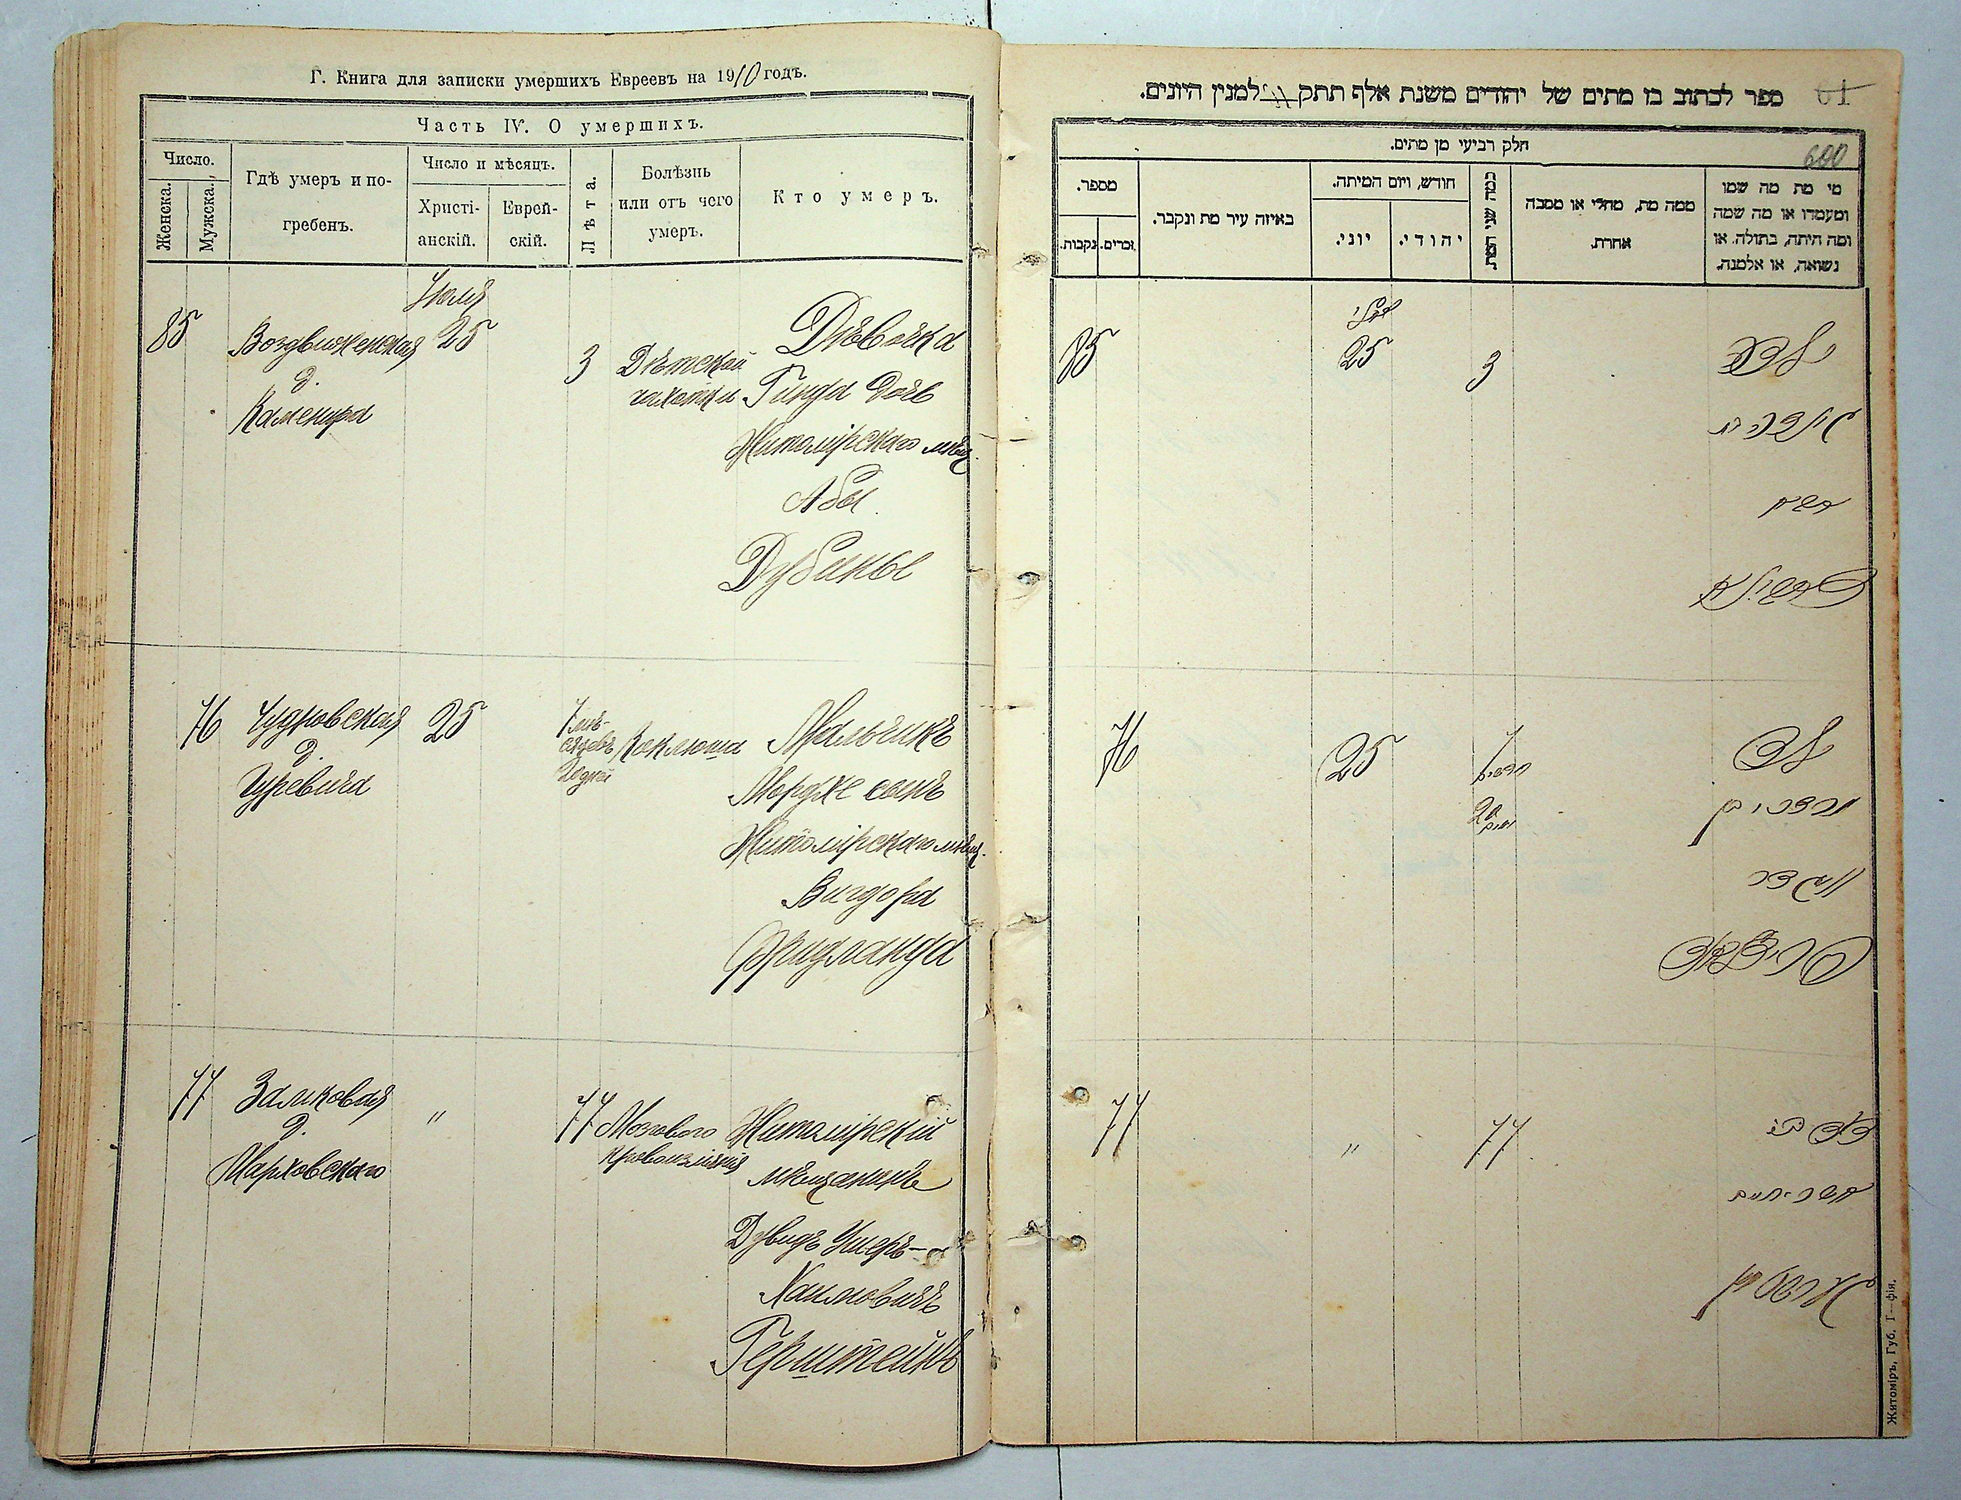 Г. Книга для записки умершихъ Евреевъ на 1910 годъ.
Часть IV. О умершихъ.
Число.
Женска.
Мужска.
Гдѣ умеръ и по-
гребенъ.
Число и мѣсяцъ.
Христі-
анскій.
Еврей-
скій.
Лѣта.
Болѣзнь
или отъ чего
умеръ.
Кто умеръ.
Іюля
85
Воздвиженская
д.
Каменира
25
3
Дѣтской
чахотки
Дѣвочка
Гинда дочь
Житомірскаго мѣщ.
Абы
Дубины
76
Чудновская
д.
Гуревича
25
7 мѣ-
сяцевъ
20 дней
Коклюша
Мальчикъ
Мордхе сынъ
Житомірскаго мѣщ.
Вигдора
Фридланда
77
Замковая
д.
Марховскаго
"
77
Мозгового
кровоизліянія
Житомірскій
мѣщанинъ
Дувидъ Ушеръ-
Хаимовичъ
Герштейнъ
ספר לכתוב בו מתים של יהודים משנת אלף תתק למנין היונים.
61
חלק רביעי מן מתים.
600
מספר.
נקבות.
זכרים.
באיזה עיר מת ונקבר.
חודש, ויום המיתה.
יוני.
יהודי.
כמה שני המת
ממה מת, מחלי או מסבה
אחרת.
מי מת מה שמו
ומעמדו או מה שמה
ומה היתה, בתולה. או
נשואה, או אלמנה.
85
יולי
25
3
ילדה
76
25
7
חדשים
20
ימים
ילד
אביגדור
פרידלאנד
77
"
77
דוד
Житоміръ, Губ. Т—фія.